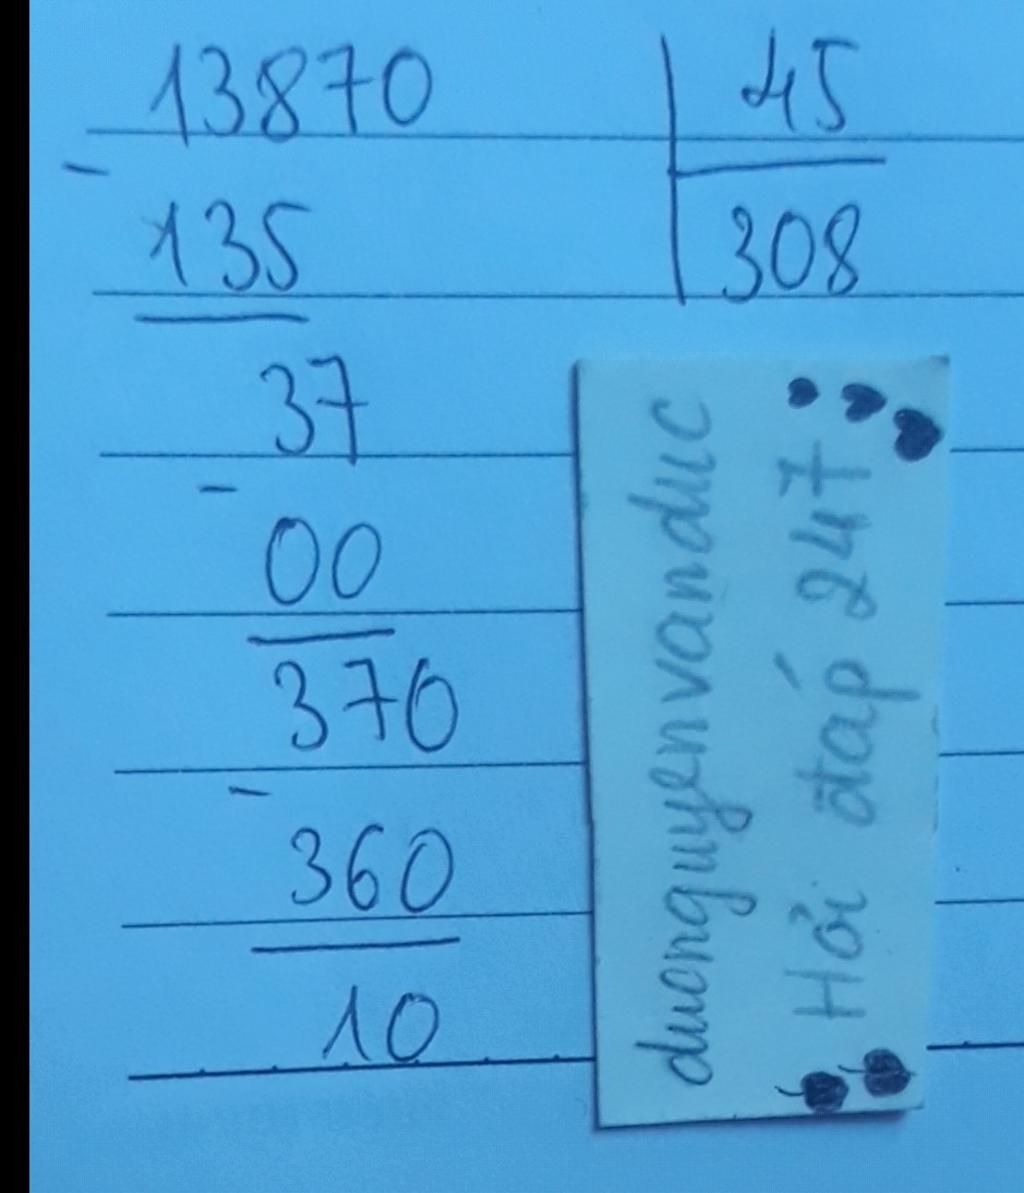 13870 | 45
-
135 | 308
37
-
00
370
-
360
10
duongnguyenvanduc
Hỏi đáp 247